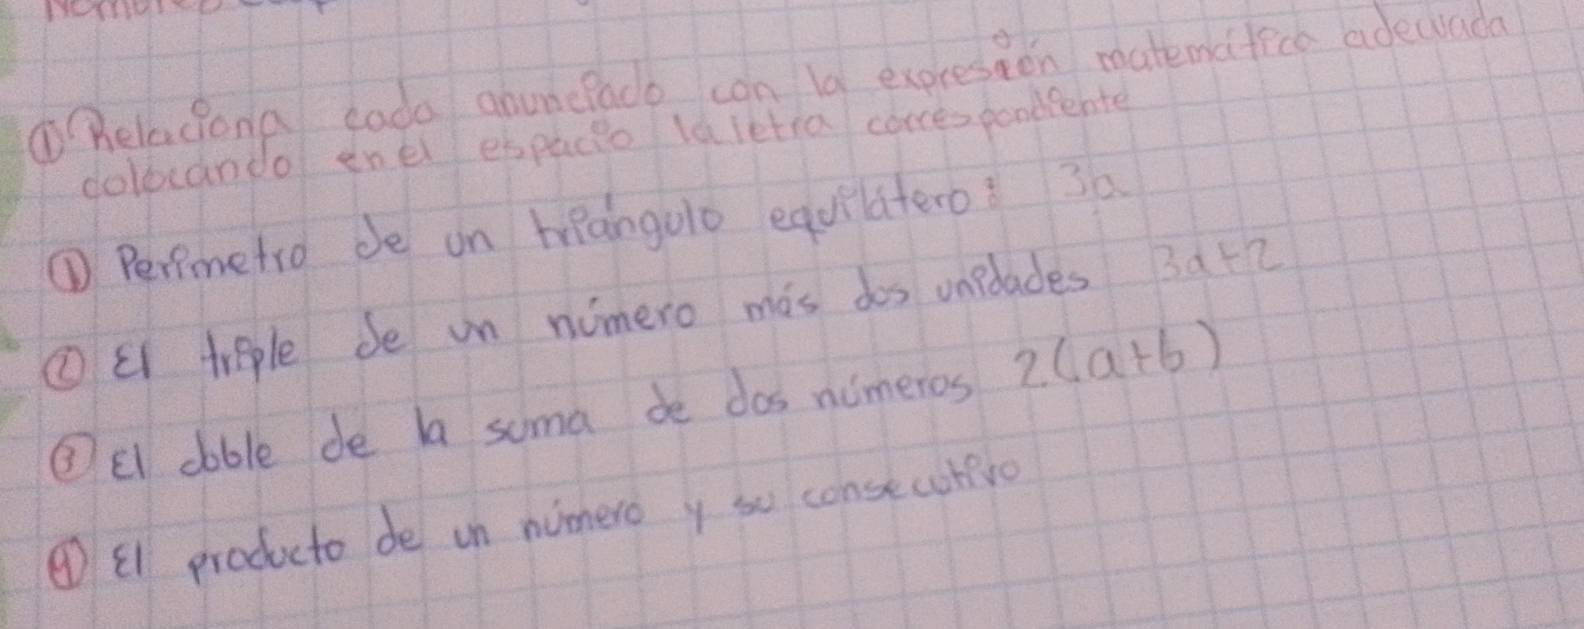 ① Relaciona cada anunciado con la expresión matemática adecuada
colocando en el espacio la letra correspondiente
① Perimetro de un triángulo equilátero: 3a
② El triple de un número más dos unidades 3a+2
③ El doble de la suma de dos números 2(a+b)
④ El producto de un número y su consecutivo